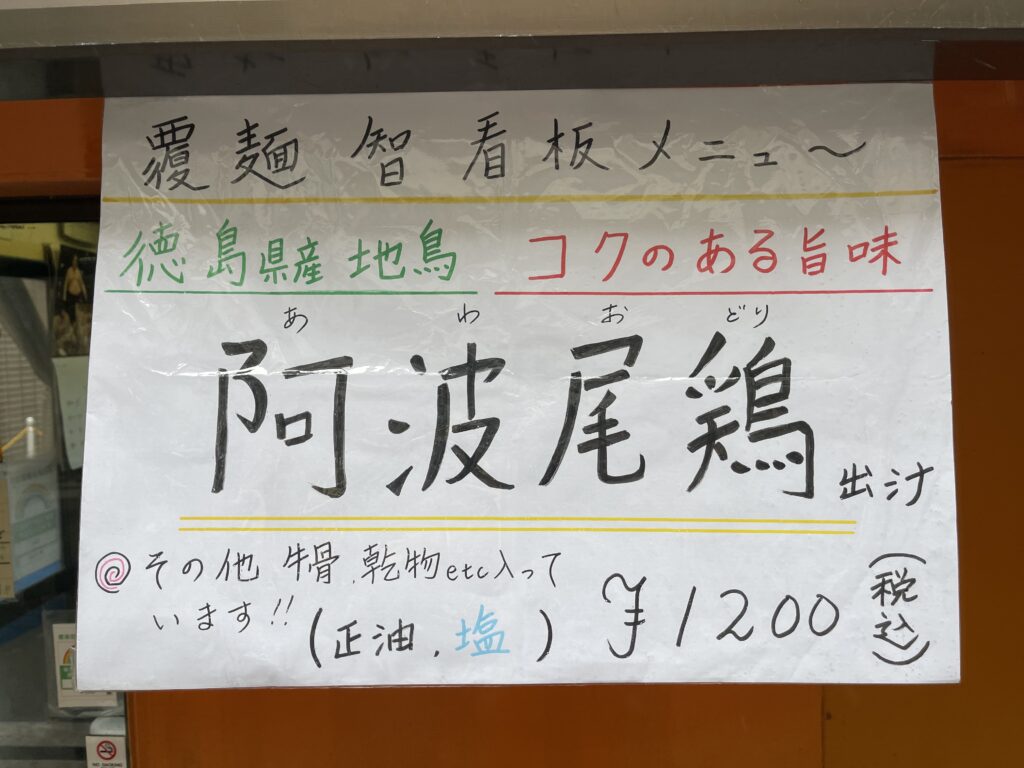 覆麺智看板メニュ〜
徳島県産地鳥 コクのある旨味
あ わ お どり
阿波尾鶏出汁
その他 牛骨、乾物etc入って
います!!
(正油、塩)
¥1200(税込)
NO SMOKING